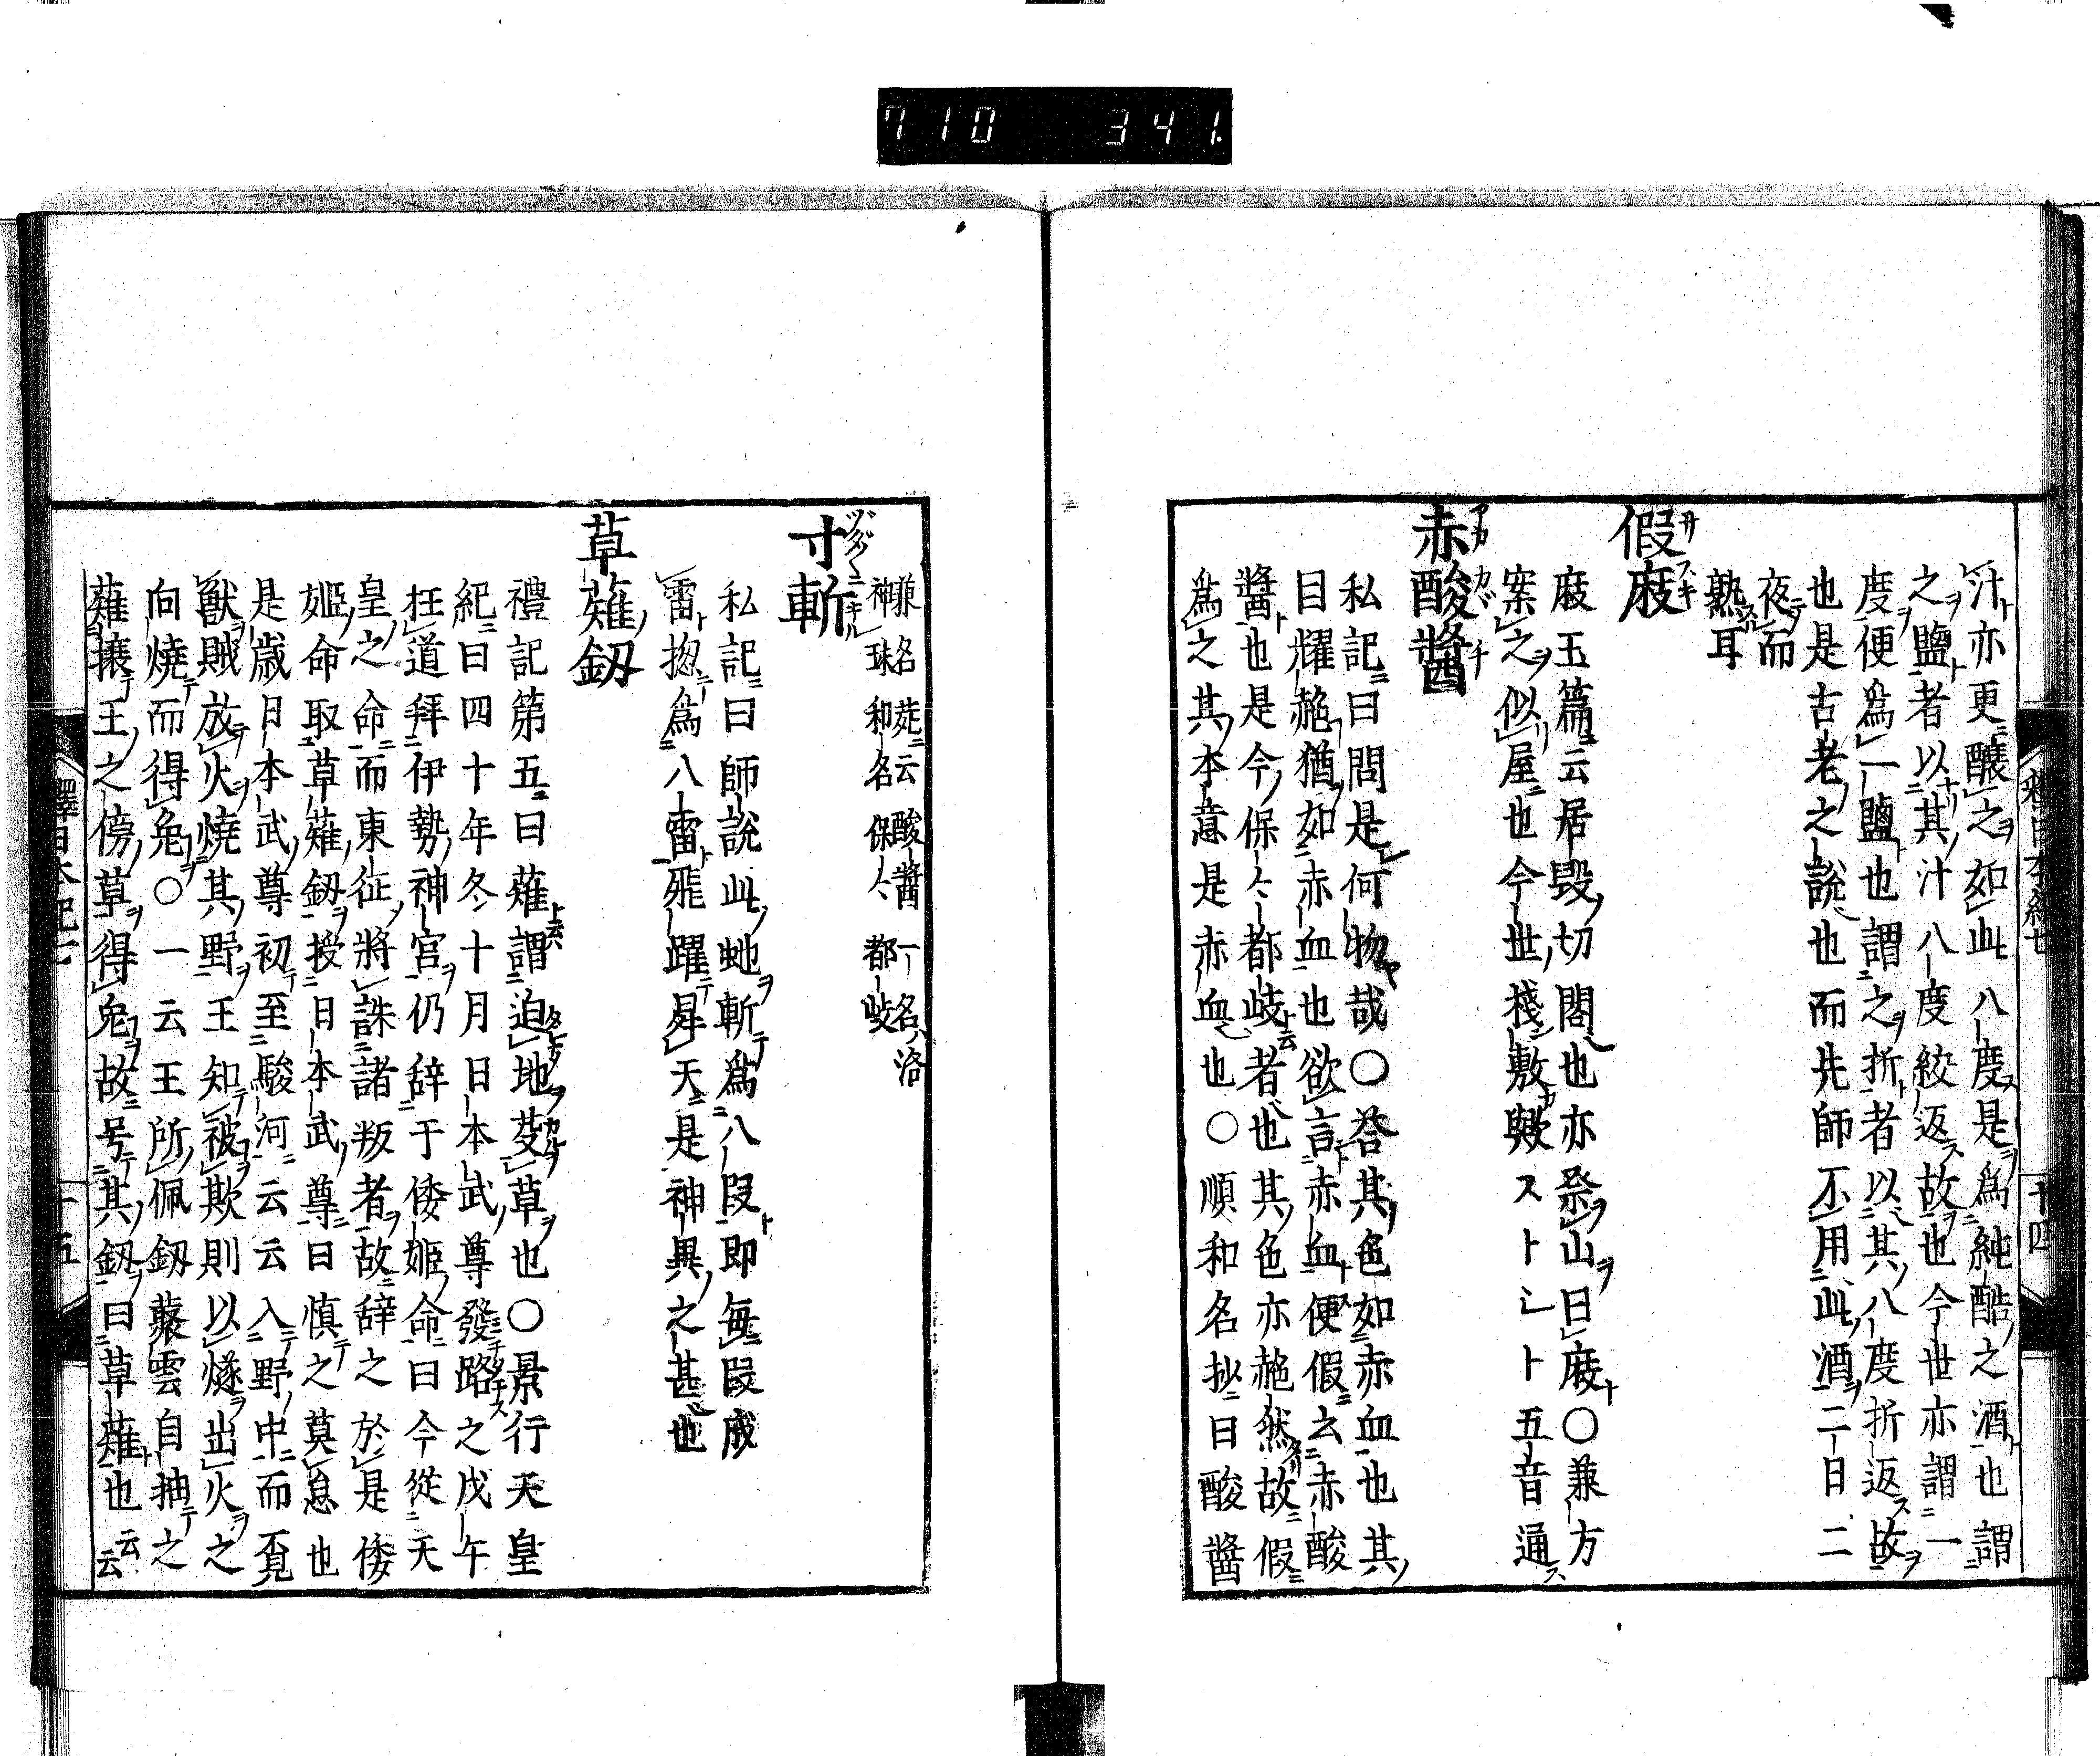 710 341
汁亦更釀之如此八度是爲純酷之酒也謂
之鹽者以其汁八度絞返故也今世亦謂一
度便爲一鹽也謂之折者以其八度折返故
也是古老之說也而先師不用此酒二日二
夜而
熟耳
假庪
庪玉篇云居毀切閣也亦祭山曰庪○兼方
案之似屋也今世棧敷歟ストシト五音通
赤酸醬
私記曰問是何物哉○答其色如赤血也其
目耀赩猶如赤血也欲言赤血便假云赤酸
醬也是今保々都岐者也其色亦赩然故假
爲之其本意是赤血也○順和名抄曰酸醬
兼名苑云酸醬一名洛
神珠和名保々都岐
寸斬
私記曰師說此虵斬爲八段即每段成
雷揔爲八雷飛躍昇天是神異之甚也
草薙釼
禮記第五曰薙謂迫地芟草也○景行天皇
紀曰四十年冬十月日本武尊發路之戊午
枉道拜伊勢神宮仍辞于倭姬命曰今從天
皇之命而東征將誅諸叛者故辞之於是倭
姬命取草薙釼授日本武尊曰慎之莫怠也
是歲日本武尊初至駿河云云入野中而覓
獸賊放火燒其野王知被欺則以燧出火之
向燒而得免○一云王所佩釼藂雲自抽之
薙攘王之傍草得免故号其釼曰草薙也云云
釋日本紀七
十四
釋日本紀七
十五